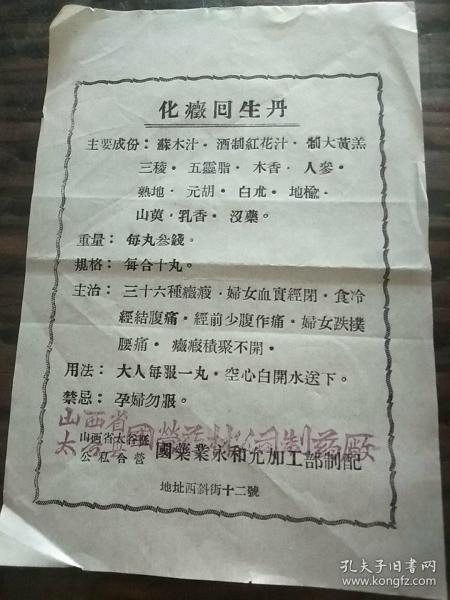 化癥回生丹
主要成份：蘇木汁·酒制紅花汁·制大黃羔
三稜·五靈脂·木香·人參·
熟地·元胡·白朮·地榆·
山萸·乳香·沒藥。
重量：每丸叁錢。
規格：每合十丸。
主治：三十六種癥瘕·婦女血實經閉·食冷
經結腹痛·經前少腹作痛·婦女跌撲
腰痛·癥瘕積聚不開·
用法：大人每服一丸·空心白開水送下。
禁忌：孕婦勿服。
山西省
山西省太谷縣
公私合營
國藥業永和允加工部制配
地址西斜街十二號
孔夫子旧书网
www.kongfz.com